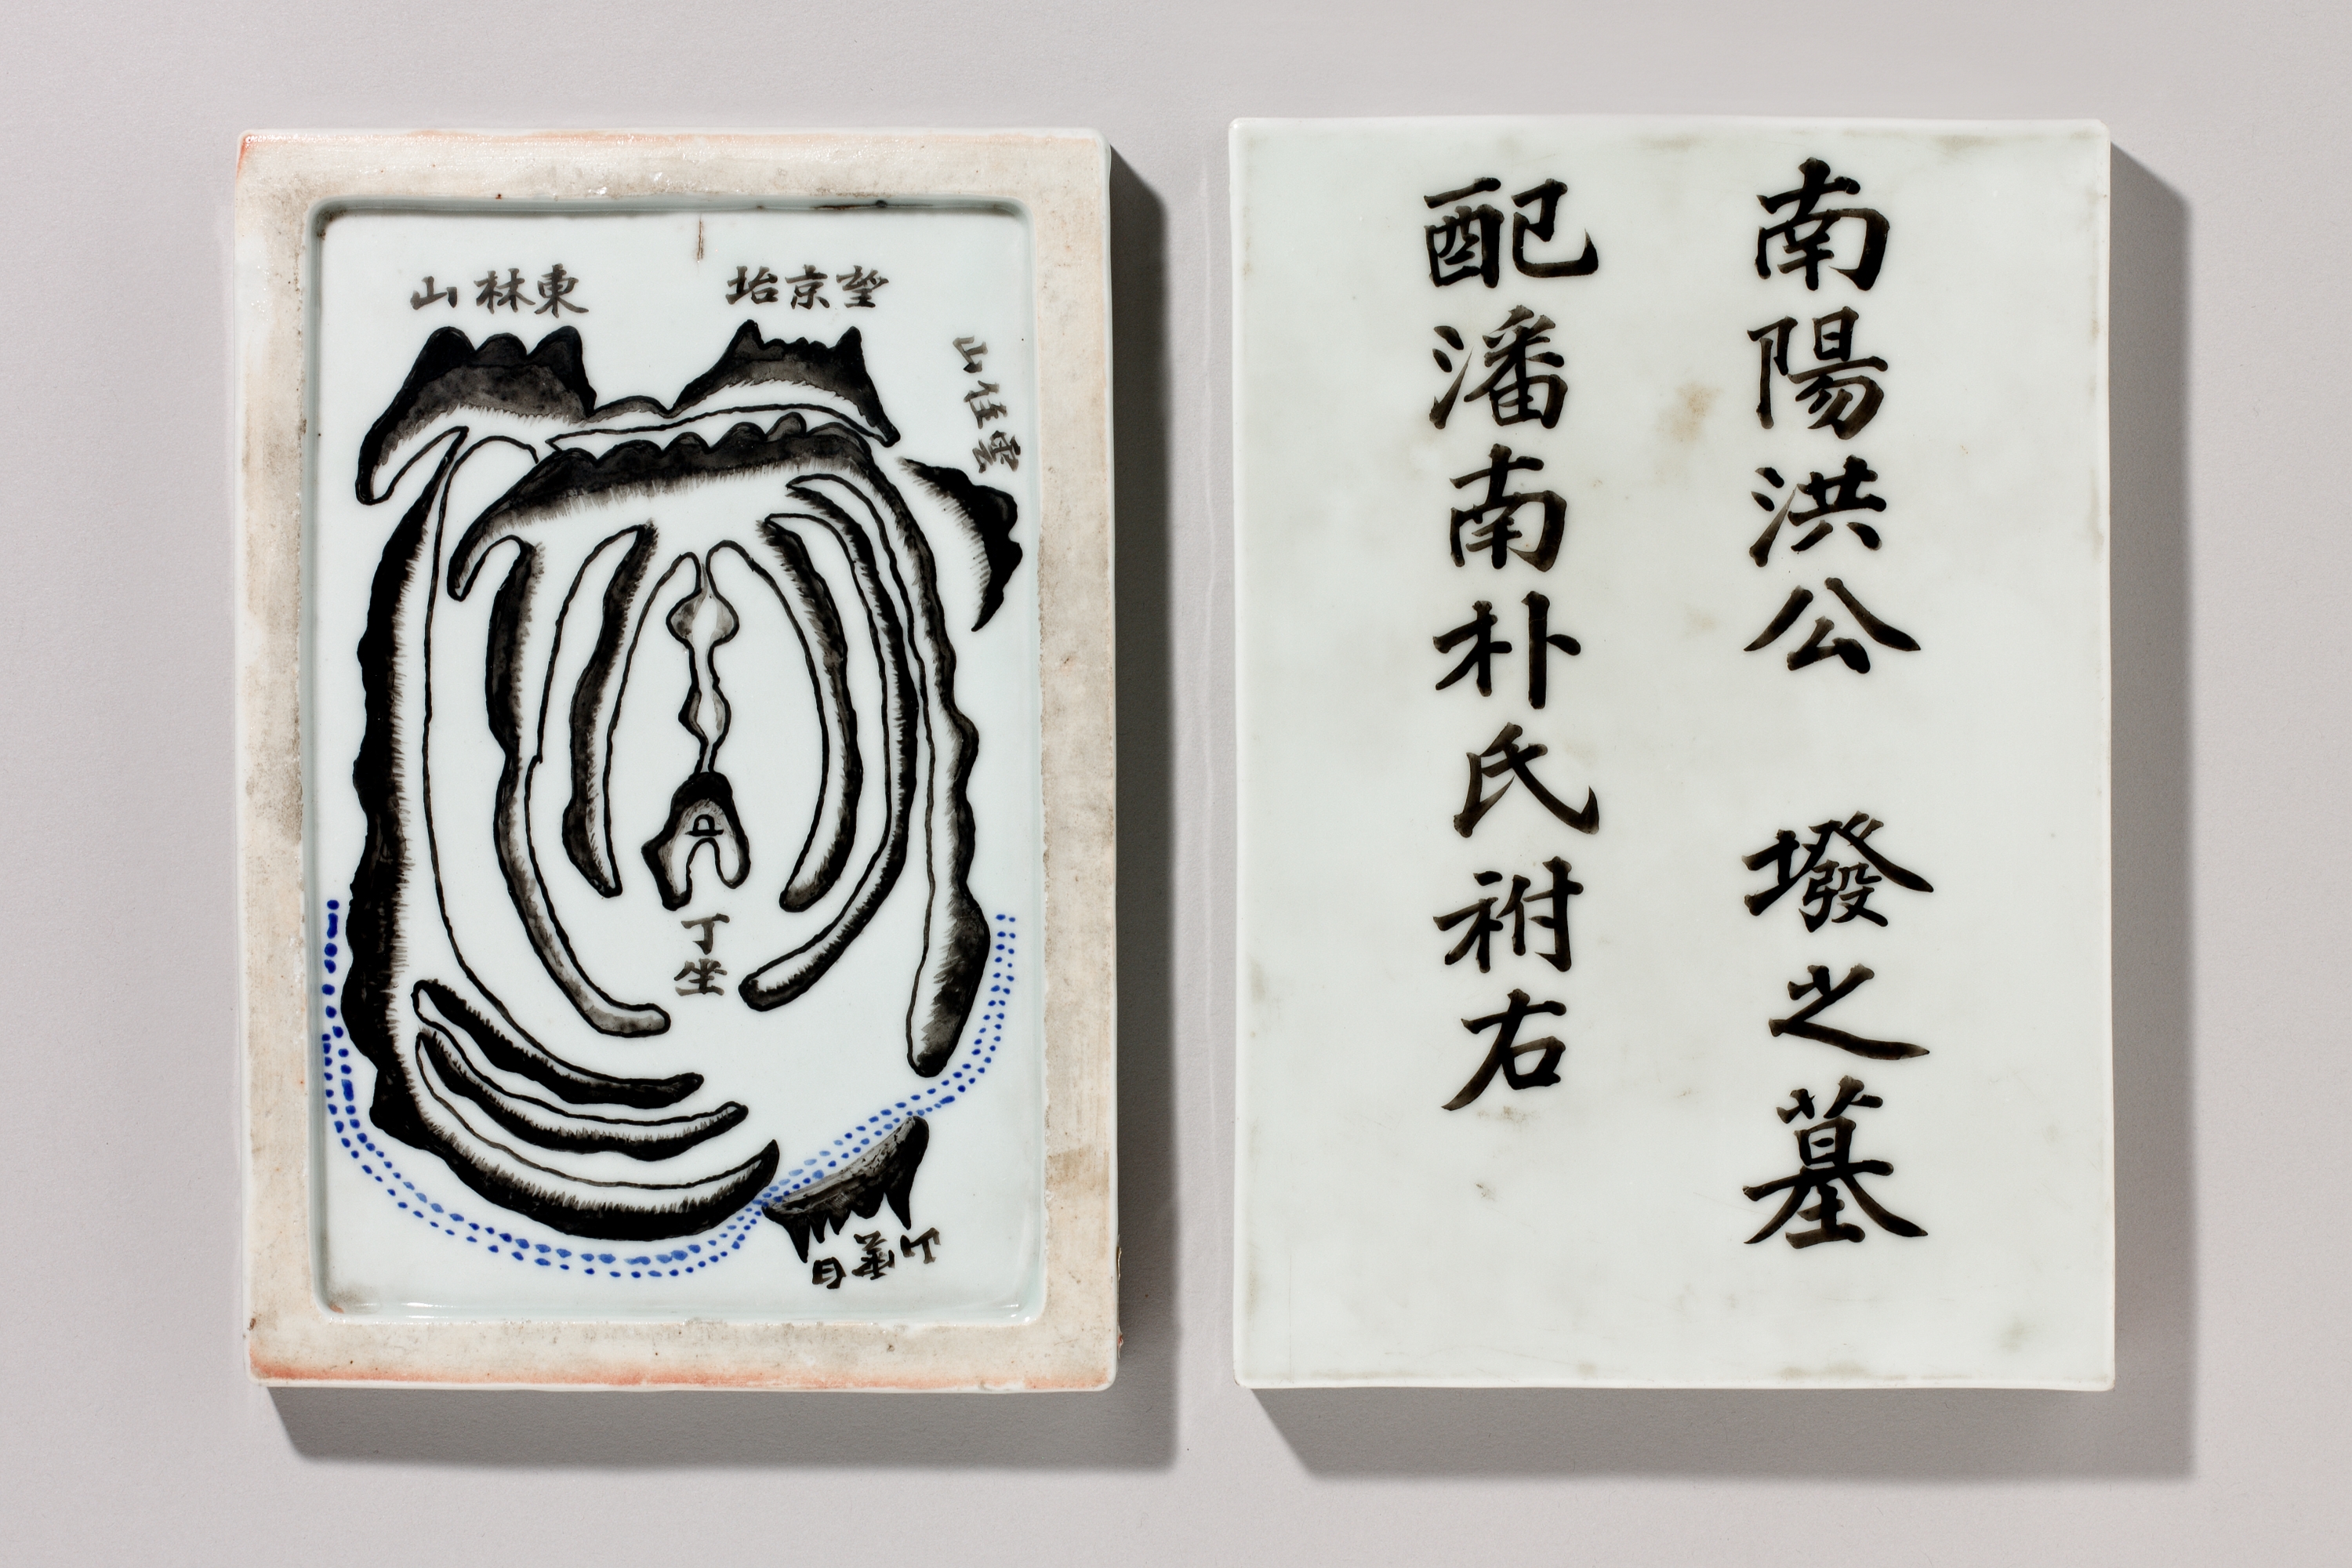 東林山
望京坮
雲住山
丁坐
白雲山
南陽洪公 墢之墓
配潘南朴氏祔右